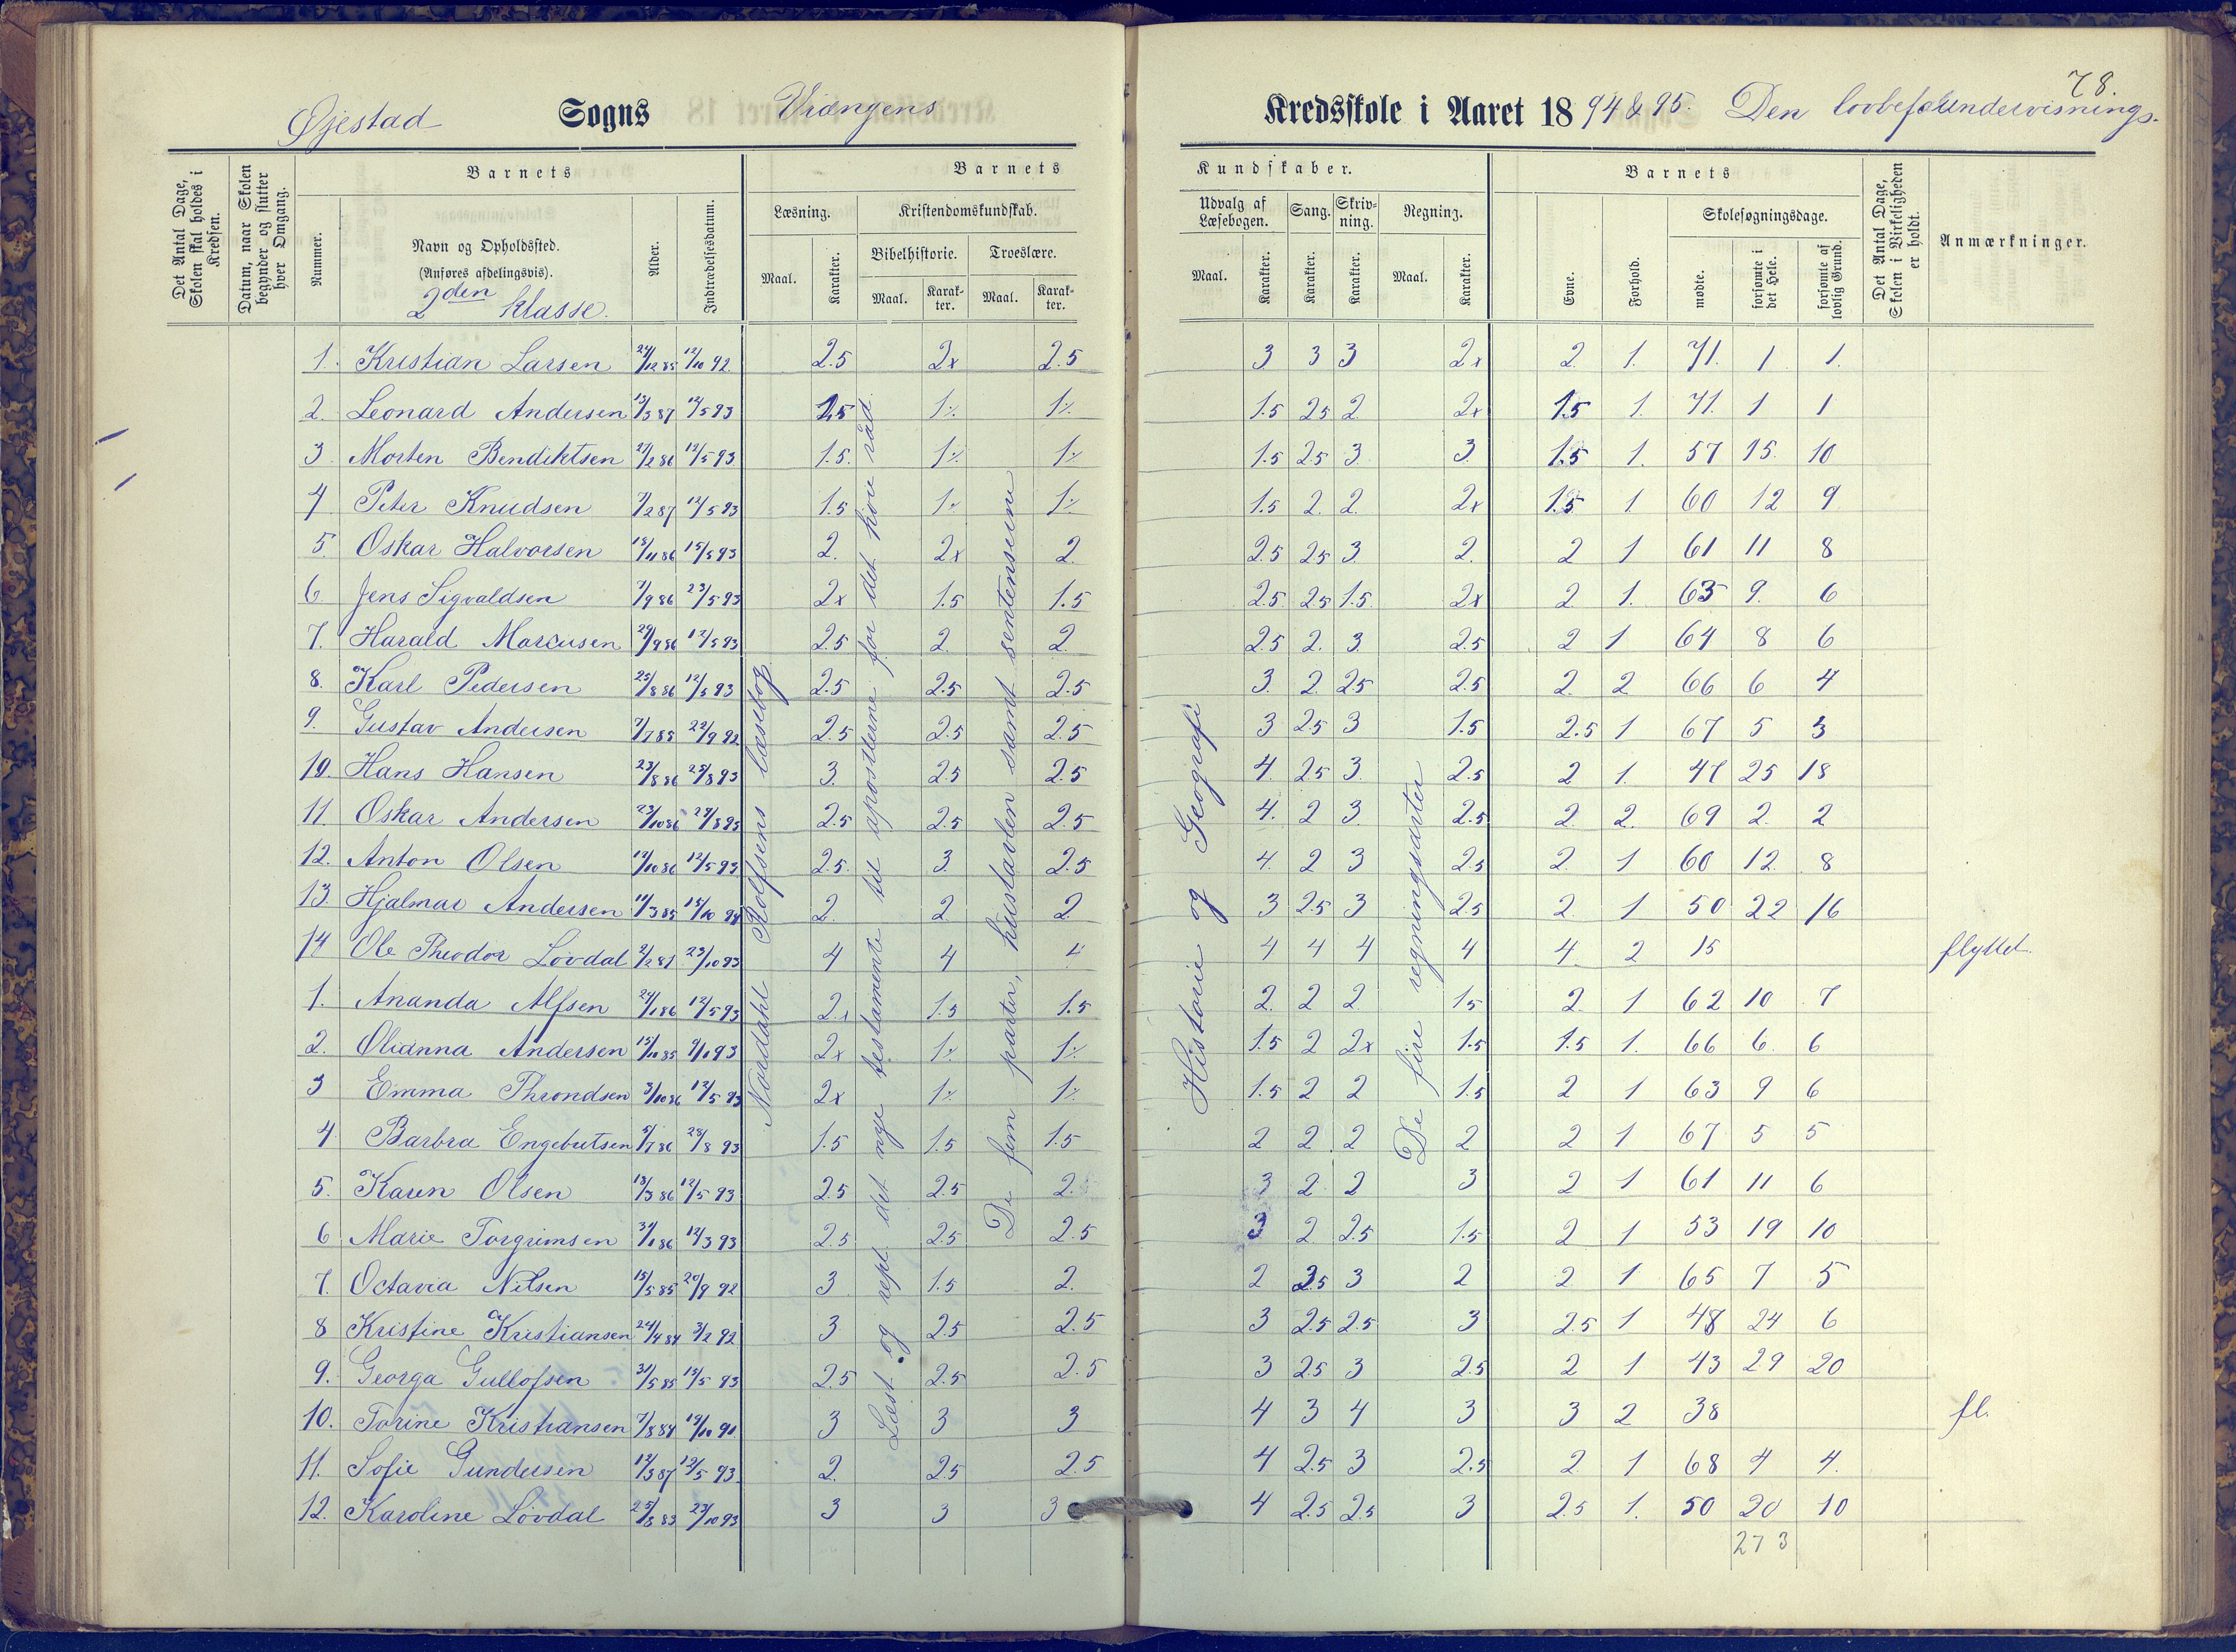 78.
Øjestad Sogns Vrængens Kredsskole i Aaret 1894 & 95. Den lovbef. undervisnings.
Det Antal Dage, Skolen skal holdes i Kredsen.
Datum, naar Skolen begynder og slutter hver Omgang.
Barnets
Nummer.
Navn og Opholdssted.
(Anføres afdelingsvis).
2den klasse.
Alder.
Indtrædelsesdatum.
Barnets
Læsning.
Maal.
Karakter.
Kristendomskundskab.
Bibelhistorie.
Maal.
Karakter.
Troeslære.
Maal.
Karakter.
Kundskaber.
Udvalg af Læsebogen.
Maal.
Karakter.
Sang.
Karakter.
Skrivning.
Karakter.
Regning.
Maal.
Karakter.
Barnets
Evne.
Forhold.
Skolesøgningsdage.
mødte.
forsømte i det Hele.
forsømte af lovlig Grund.
Det Antal Dage, Skolen i Virkeligheden er holdt.
Anmærkninger.
Nordahl Rolfsens læsebog
Læst og rept. det nye testamente til apostlerne for det høie råd.
De fem parter, hustavlen samt sentenserne
Historie og Geografi
De fire regningsarter
1. Kristian Larsen 24/12 85 12/10 92. 2.5 2x 2.5 3 3 3 2x 2 1. 71. 1 1.
2. Leonard Andersen 13/3 87 12/5 93 2.5 1% 1% 1.5 2.5 2 2x 1.5 1. 71. 1 1
3. Morten Bendiktsen 27/2 86 12/5 93 1.5. 1% 1% 1.5 2.5 3 3. 1.5 1. 57 15. 10
4 Peter Knudsen 7/2 87 12/5 93 1.5 1% 1% 1.5 2. 2. 2x 1.5 1. 60 12 9
5. Oskar Halvorsen 18/11 86 15/5 93 2. 2x 2. 2.5 2.5 3. 2. 2 1 61 11 8
6. Jens Sigvaldsen 7/9 86 23/5 93 2x 1.5 1.5 2.5. 2.5 1.5. 2x 2 1. 63 9. 6
7. Harald Marcusen 29/9 86 12/5 93 2.5 2. 2. 2.5 2. 3. 2.5 2 1 64 8 6
8. Karl Pedersen 25/8 86 12/5 93 2.5 2.5 2.5 3. 2. 2.5 2.5 2. 2 66 6 4
9. Gustav Andersen 7/7 85 22/9 92 2.5 2.5 2.5 3 2.5 3 1.5 2.5 1 67 5 3
10. Hans Hansen 23/8 86 25/8 93 3. 2.5 2.5 4. 2.5 3. 2.5 2 1. 47 25 18
11. Oskar Andersen 23/10 86 29/8 93 2.5 2.5 2.5 4. 2 3. 2.5 2. 2. 69 2. 2
12. Anton Olsen 12/10 86 12/5 93 2.5. 3. 2.5 4. 2 3 2.5 2. 1 60 12. 8
13. Hjalmar Andersen 11/3 85 15/10 94 2. 2 2 3 2.5 3 2.5 2 1 50 22 16
14 Ole Theodor Løvdal 2/2 87 23/10 93 4 4 4 4 4 4 4 4 2 15 flyttet.
1. Ananda Alfsen 24/1 86 12/5 93 2x 1.5 1.5 2. 2 2 1.5 2. 1 62 10 7
2. Olianna Andersen 15/10 85 9/1 93 2x 1% 1% 1.5 2 2x 1.5 1.5 1. 66 6. 6
3 Emma Throndsen 3/10 86 12/5 93 2x 1% 1% 1.5 2 2 1.5 2 1 63 9 6
4 Barbra Engebretsen 5/7 86 28/8 93 1.5 1.5 1.5 2 2 2 2 2 1 67 5 5
5. Karen Olsen 13/3 86 12/5 93 2.5 2.5 2. 3 2 2 3 2 1 61 11 6
6 Marie Torgrimsen 31/1 86 12/3 93 2.5 2.5 2.5 3 2 2.5 1.5 2 1 53 19 10
7. Octavia Nilsen 15/5 85 20/9 92 3 1.5 2. 2 2.5 3 2 2 1 65 7 5
8 Kristine Kristiansen 24/4 84 3/2 92 3 2.5 2.5 3 2.5 2.5 3 2.5 1 48 24 6
9. Georga Gullofsen 31/5 85 15/5 93 2.5 2.5 2.5 3 2.5 3 2.5 2 1 43 29 20
10. Torine Kristiansen 7/8 84 19/10 91 3 3 3 4 3 4 3 3 2 38 fl.
11. Sofie Gundersen 12/3 87 12/5 93. 2. 2.5 2.5 4 2.5 3 2.5 2 1 68 4 4.
12. Karoline Løvdal 25/8 83 23/10 93 3 3 3 4 2.5 2.5 3 2.5 1. 50 20 10
273